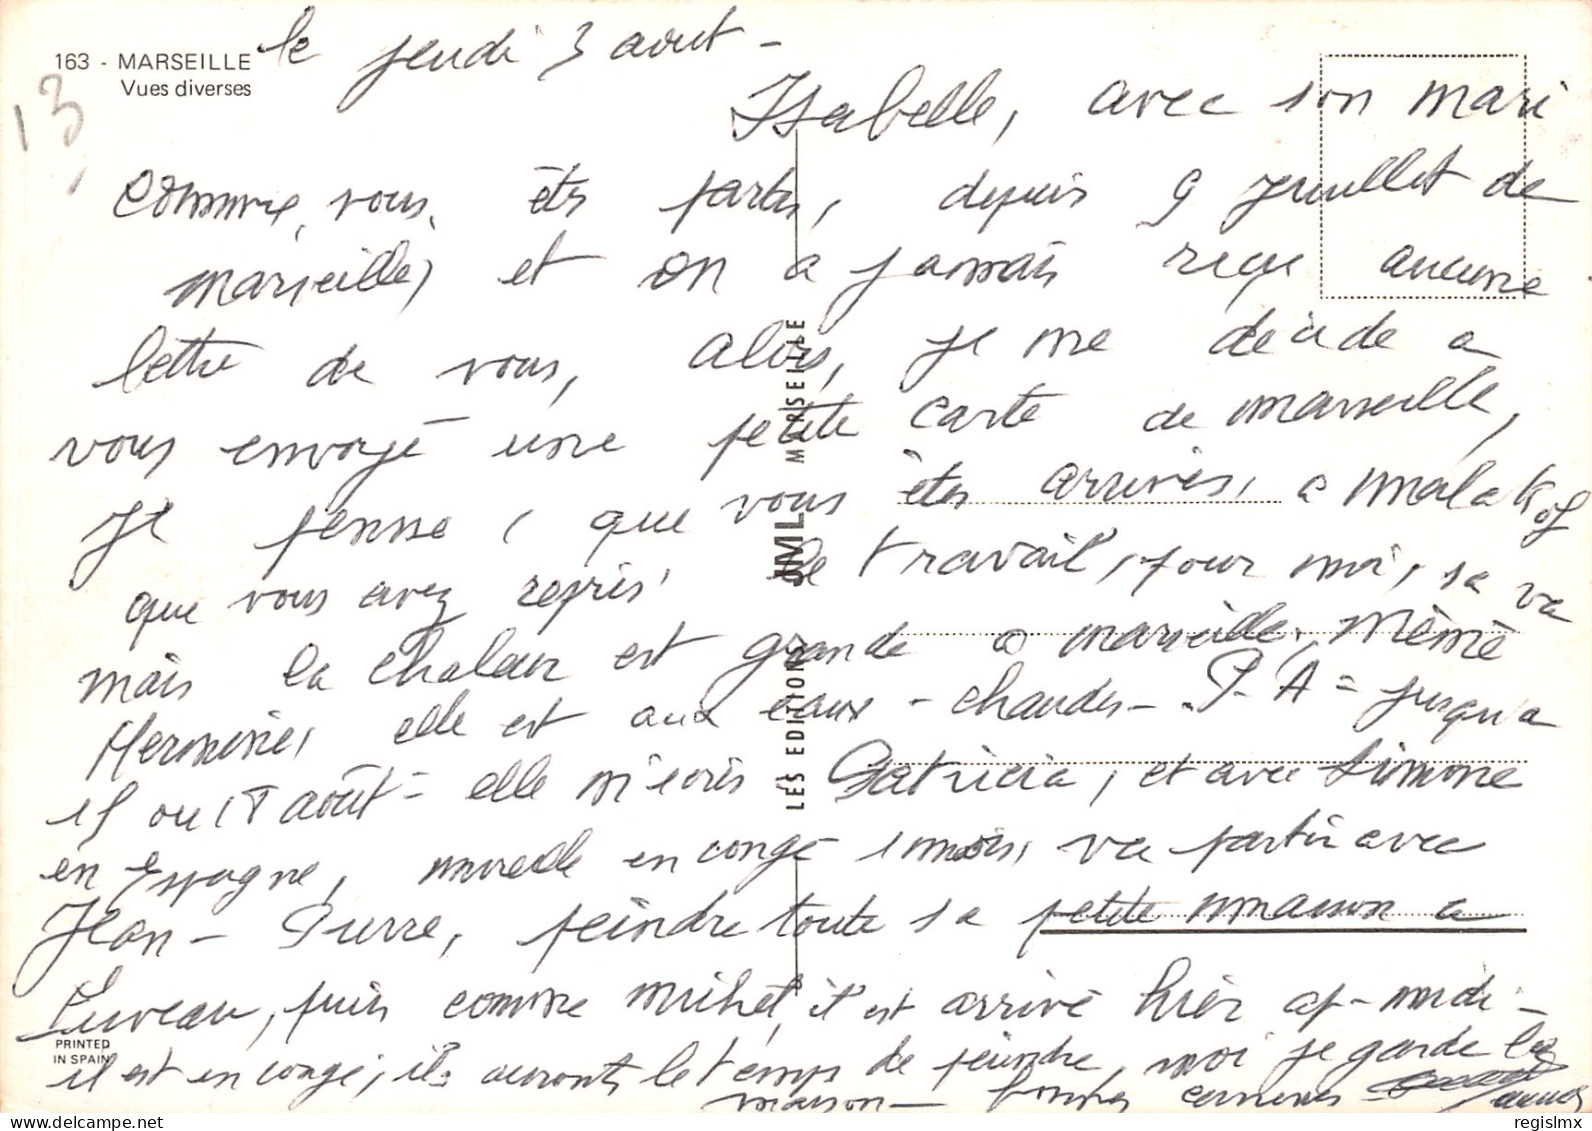 163 - MARSEILLE
Vues diverses
13
le jeudi 3 aout -
Isabelle, avec son mari
comme, vous, êts partis, depuis 9 juillet de
marseille, et on a jamais reçu aucune
lettre de vous, alors, je me décide a
vous envoyé une petite carte de marseille,
je pense, que vous êtes arrivés, a malakof
que vous avez repris, le travail, pour moi, sa va
mais la chaleur est grande a marseille, Mémé
Hermine, elle est aux eaux - chaudes - P-A = jusqu'a
15 ou 18 août = elle m'ecris Patricia, et avec Simone
en Espagne, mireille en congé 1 mois, va partir avec
Jean - Pierre, peindre toute sa petite maison a
puis comme michel, il est arrivé hier ap-midi -
il est en congé, ils auront le temps de peindre, moi je garde la
maison - bonnes
LES EDITIONS JML MARSEILLE
PRINTED
IN SPAIN
regislmx